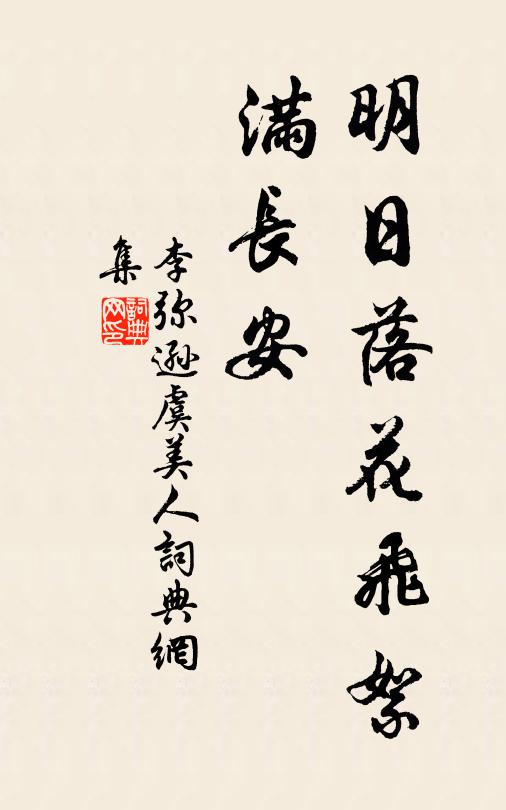 明日落花飛絮
滿長安
李弥遜虞美人詞典網
集
詞典
网印